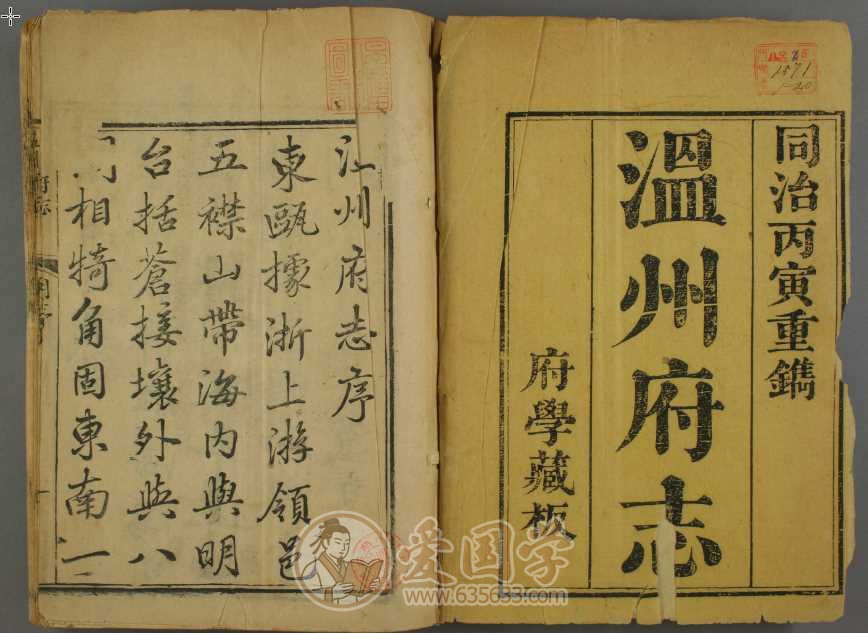 同治丙寅重鐫
溫州府志
府學藏板
州府志序
東甌據浙上游領邑
五襟山帶海內與明
台括蒼接壤外與八
相犄角固東南一
府志
1871
1-20
爱国学
www.635633.com